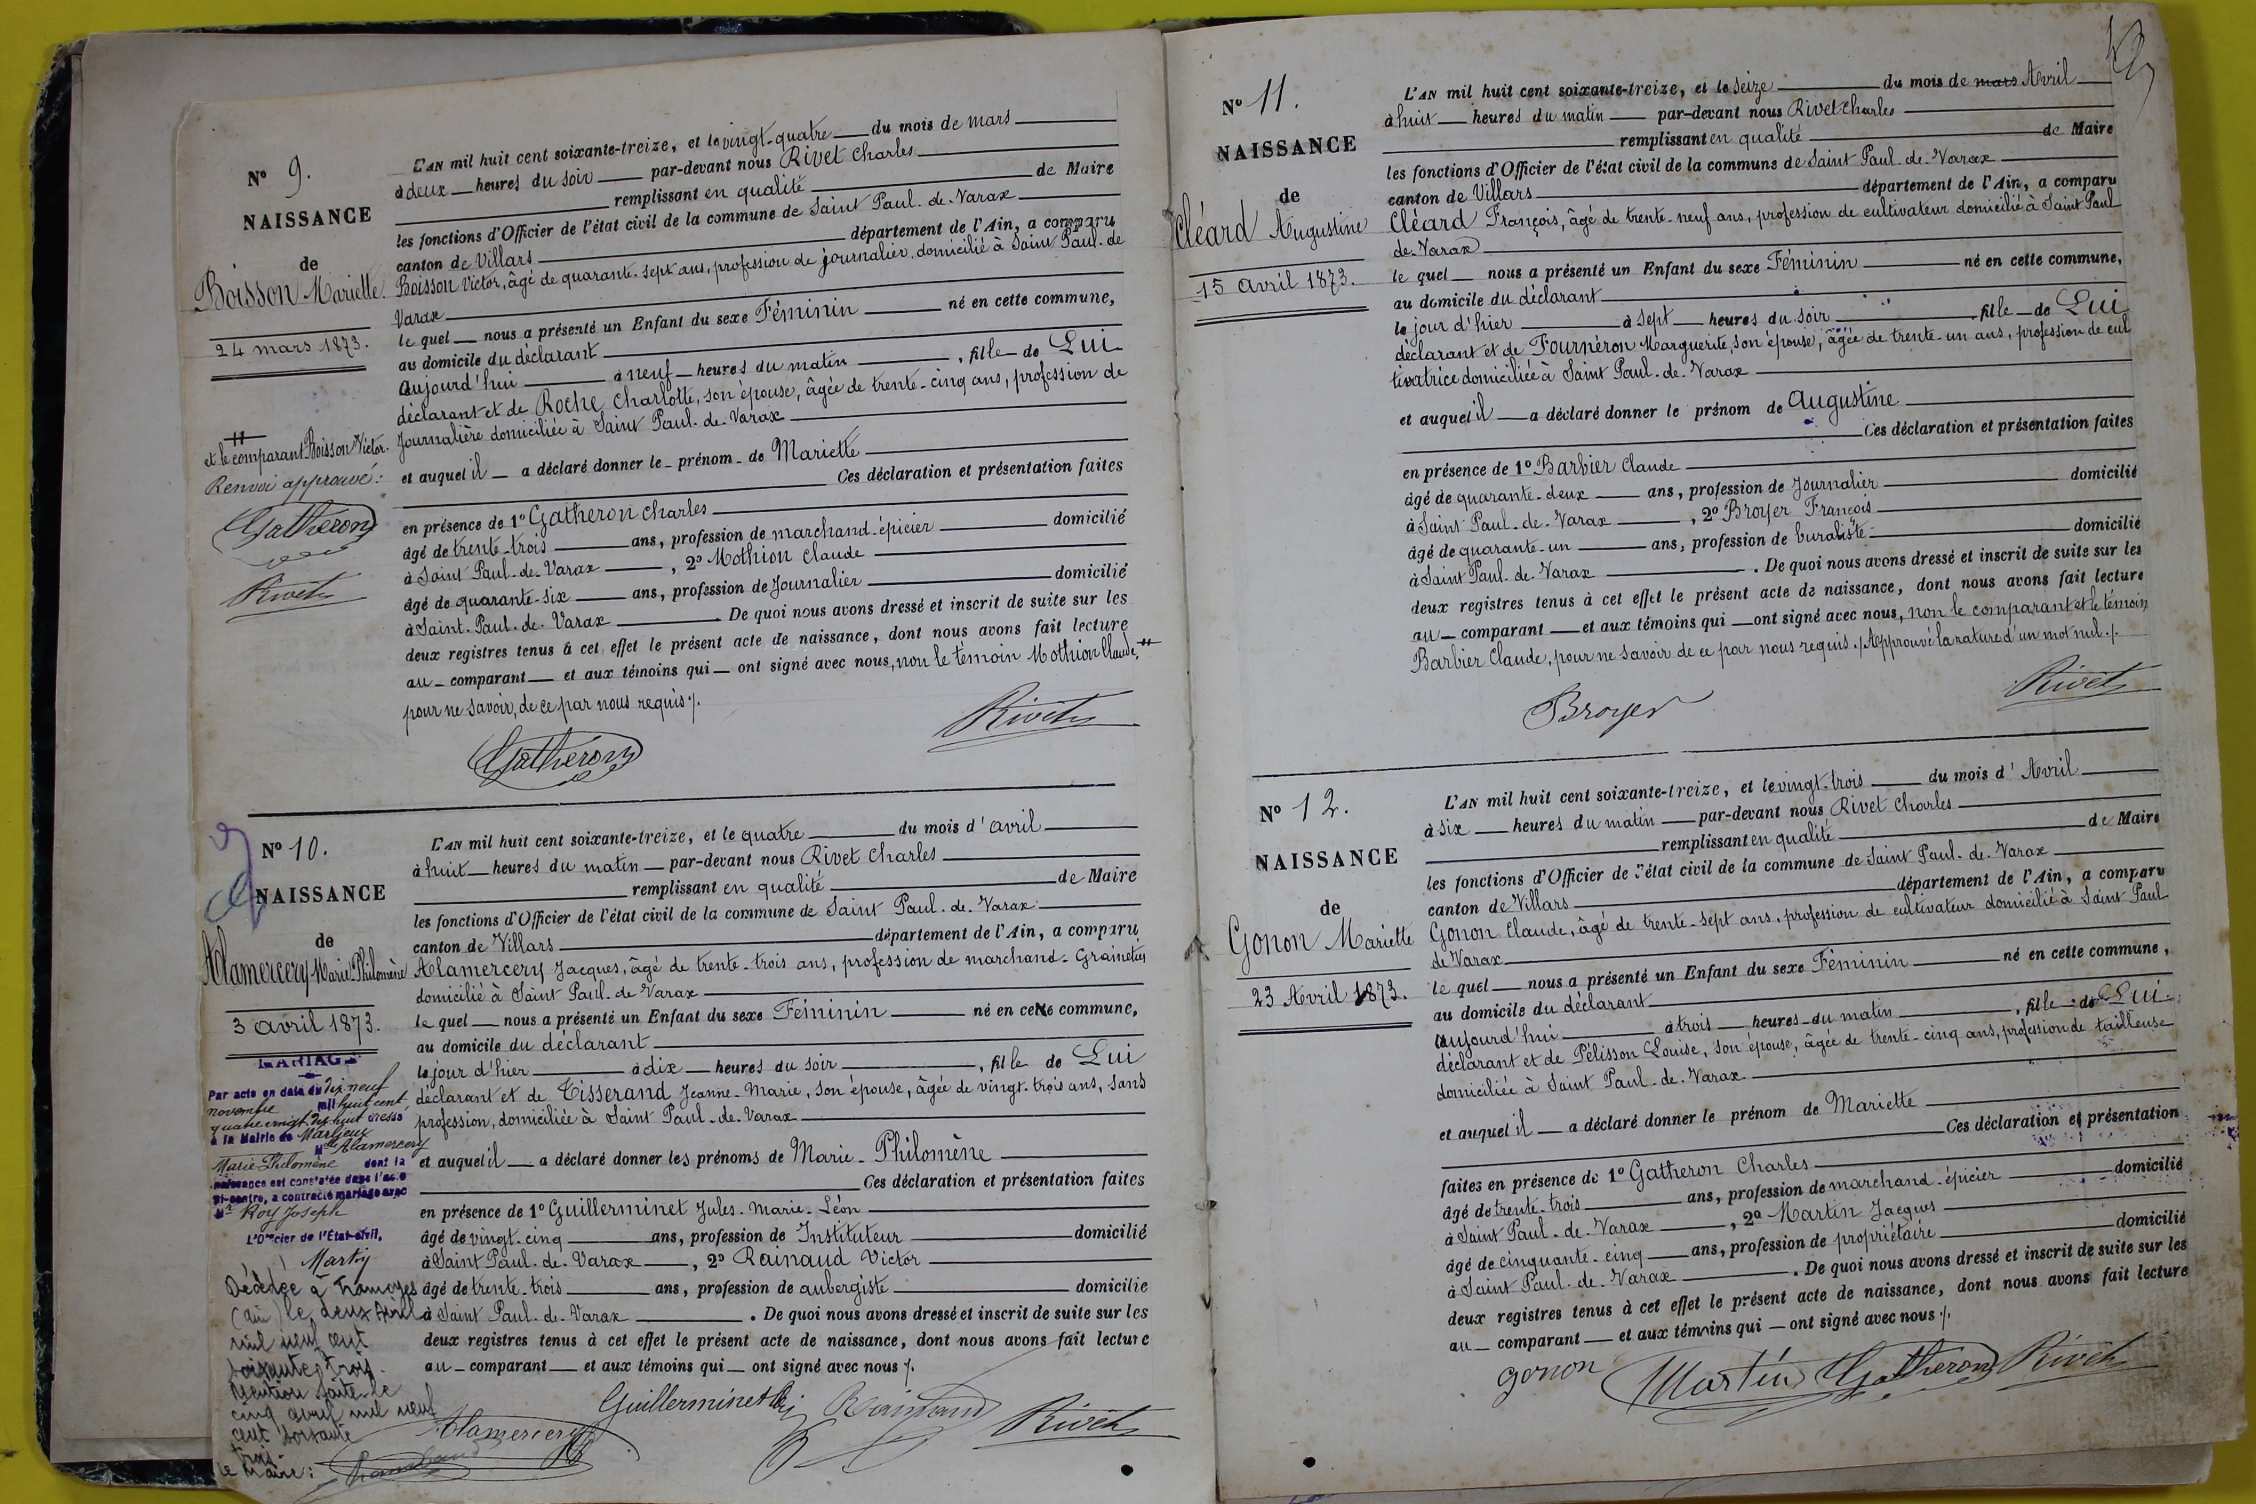 N° 9.
NAISSANCE
de
Boisson Mariette.
24 mars 1873.
et le comparant Boisson Victor.
Renvoi approuvé :
Gatheron
Rivet
L'AN mil huit cent soixante-treize, et le vingt-quatre du mois de mars
à deux heures du soir par-devant nous Rivet Charles
remplissant en qualité de Maire
les fonctions d'Officier de l'état civil de la commune de Saint Paul-de-Varax
canton de Villars département de l'Ain, a comparu
Boisson Victor, âgé de quarante-sept ans, profession de journalier, domicilié à Saint Paul-de
Varax
le quel nous a présenté un Enfant du sexe Féminin né en cette commune,
au domicile du déclarant
aujourd'hui à neuf heures du matin, fille de Lui
déclarant et de Roche Charlotte, son épouse, âgée de trente-cinq ans, profession de
Journalière domiciliée à Saint Paul-de-Varax
et auquel il a déclaré donner le prénom de Mariette
Ces déclaration et présentation faites
en présence de 1° Gatheron Charles
âgé de trente-trois ans, profession de marchand-épicier domicilié
à Saint Paul-de-Varax, 2° Mothion Claude
âgé de quarante-six ans, profession de Journalier domicilié
à Saint-Paul-de-Varax. De quoi nous avons dressé et inscrit de suite sur les
deux registres tenus à cet effet le présent acte de naissance, dont nous avons fait lecture
au comparant et aux témoins qui ont signé avec nous, non le témoin Mothion Claude,
pour ne savoir, de ce par nous requis ./.
Rivet
Gatheron
N° 10.
NAISSANCE
de
Alamercery Marie-Philomène
3 avril 1873.
MARIAGE
Par acte en date du dix neuf
novembre mil huit cent
quatre vingt dix huit dressé
à la Mairie de Marlieux
Mlle Alamercery
Marie-Philomène dont la
naissance est constatée dans l'acte
ci-contre, a contracté mariage avec
Mr Roy Joseph
L'Officier de l'État-civil,
Décédée à Tramoyes
(Ain) le deux Avril
mil neuf cent
soixante trois.
Mention faite le
cinq avril mil neuf
cent soixante
trois.
Le Maire :
L'AN mil huit cent soixante-treize, et le quatre du mois d'avril
à huit heures du matin par-devant nous Rivet Charles
remplissant en qualité de Maire
les fonctions d'Officier de l'état civil de la commune de Saint Paul-de-Varax
canton de Villars département de l'Ain, a comparu
Alamercery Jacques, âgé de trente-trois ans, profession de marchand-Grainetier
domicilié à Saint Paul-de Varax
le quel nous a présenté un Enfant du sexe Féminin né en cette commune,
au domicile du déclarant
le jour d'hier à dix heures du soir, fille de Lui
déclarant et de Tisserand Jeanne-Marie, son épouse, âgée de vingt-trois ans, sans
profession, domiciliée à Saint Paul-de-Varax
et auquel il a déclaré donner les prénoms de Marie-Philomène
Ces déclaration et présentation faites
en présence de 1° Guillerminet Jules-Marie-Léon
âgé de vingt-cinq ans, profession de Instituteur domicilié
à Saint Paul-de-Varax, 2° Rainaud Victor
âgé de trente-trois ans, profession de aubergiste domicilié
à Saint Paul-de-Varax. De quoi nous avons dressé et inscrit de suite sur les
deux registres tenus à cet effet le présent acte de naissance, dont nous avons fait lecture
au comparant et aux témoins qui ont signé avec nous ./.
Guillerminet Rainaud Rivet
Alamercery
N° 11.
NAISSANCE
de
Cléard Augustine
15 avril 1873.
L'AN mil huit cent soixante-treize, et le seize du mois de mars Avril
à huit heures du matin par-devant nous Rivet Charles
remplissant en qualité de Maire
les fonctions d'Officier de l'état civil de la commune de Saint Paul-de-Varax
canton de Villars département de l'Ain, a comparu
Cléard François, âgé de trente-neuf ans, profession de cultivateur domicilié à Saint Paul
de-Varax
le quel nous a présenté un Enfant du sexe Féminin né en cette commune,
au domicile du déclarant
le jour d'hier à sept heures du soir fille de Lui
déclarant et de Fournéron Marguerite, son épouse, âgée de trente-un ans, profession de cul
tivatrice domiciliée à Saint Paul-de-Varax
et auquel il a déclaré donner le prénom de Augustine
Ces déclaration et présentation faites
en présence de 1° Barbier Claude
âgé de quarante-deux ans, profession de Journalier domicilié
à Saint Paul-de-Varax, 2° Broyer François
âgé de quarante-un ans, profession de buraliste domicilié
à Saint Paul-de-Varax. De quoi nous avons dressé et inscrit de suite sur les
deux registres tenus à cet effet le présent acte de naissance, dont nous avons fait lecture
au comparant et aux témoins qui ont signé avec nous, non le comparant et le témoin
Barbier Claude, pour ne savoir de ce par nous requis ./. Approuvé la rature d'un mot nul ./.
Rivet
Broyer
N° 12.
NAISSANCE
de
Gonon Mariette
23 Avril 1873.
L'AN mil huit cent soixante-treize, et le vingt-trois du mois d'Avril
à six heures du matin par-devant nous Rivet Charles
remplissant en qualité de Maire
les fonctions d'Officier de l'état civil de la commune de Saint Paul-de-Varax
canton de Villars département de l'Ain, a comparu
Gonon Claude, âgé de trente-sept ans, profession de cultivateur domicilié à Saint Paul
de Varax
le quel nous a présenté un Enfant du sexe Féminin né en cette commune,
au domicile du déclarant
aujourd'hui à trois heures du matin, fille de Lui
déclarant et de Pélisson Louise, son épouse, âgée de trente-cinq ans, profession de tailleuse
domiciliée à Saint Paul-de-Varax
et auquel il a déclaré donner le prénom de Mariette
Ces déclaration et présentation
faites en présence de 1° Gatheron Charles
âgé de trente-trois ans, profession de marchand-épicier domicilié
à Saint Paul-de-Varax, 2° Martin Jacques
âgé de cinquante-cinq ans, profession de propriétaire domicilié
à Saint Paul-de-Varax. De quoi nous avons dressé et inscrit de suite sur les
deux registres tenus à cet effet le présent acte de naissance, dont nous avons fait lecture
au comparant et aux témoins qui ont signé avec nous ./.
gonon Martin Gatheron Rivet